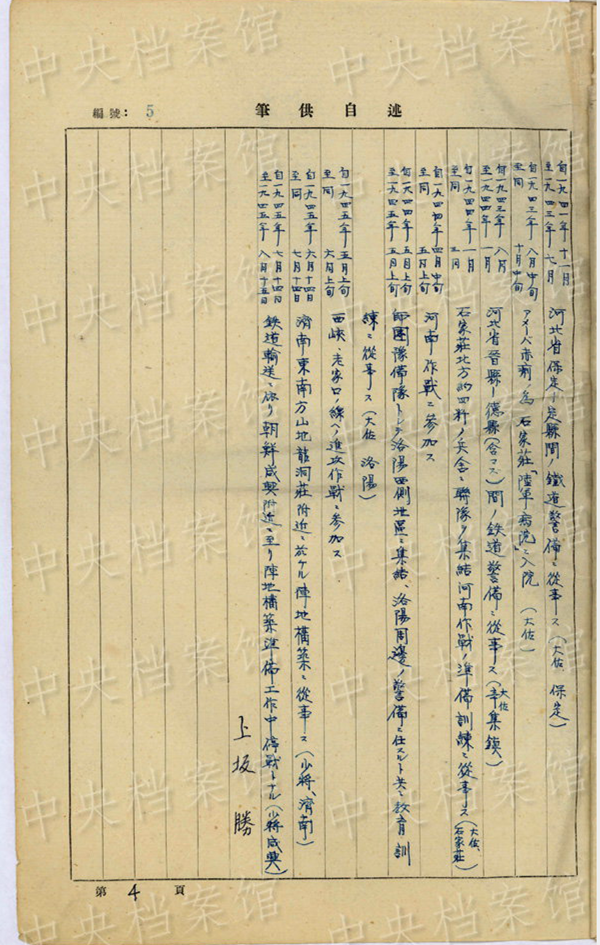 編號: 5
筆供自述
自一九四一年十一月
至一九四三年七月
河北省保定-定縣間ノ鐵道警備ニ從事ス(大佐 保定)
自一九四三年八月中旬
至同 十月中旬
アメーバ赤痢ノ為石家莊「陸軍病院」ニ入院 (大佐)
自一九四三年八月
至一九四四年一月
河北省晉縣-德縣(含マズ)間ノ鉄道警備ニ從事ス(大佐 辛集鎮)
自一九四四年一月
至同 三月
石家莊北方約四粁ノ兵舎ニ聯隊ヲ集結河南作戰ノ準備訓練ニ從事ス(大佐、石家莊)
自一九四四年四月中旬
至同 五月上旬
河南作戰ニ參加ス
自一九四四年五月上旬
至一九四五年五月上旬
師團豫備隊トシテ洛陽西側地區ニ集結、洛陽周邊ノ警備ニ任スルト共ニ教育訓
練ニ從事ス(大佐 洛陽)
自一九四五年五月上旬
至同 六月上旬
西峡、老家口ノ線ヘノ進攻作戰ニ參加ス
自一九四五年六月十四日
至同 七月十四日
濟南東南方山地龍洞莊附近ニ於ケル陣地構築ニ從事ス(少將、濟南)
自一九四五年七月十四日
至一九四五年八月十五日
鉄道輸送ニ依リ朝鮮咸興附近ニ至リ陣地構築準備工作中停戰トナル(少將咸興)
上坂勝
第 4 頁
中央档案馆